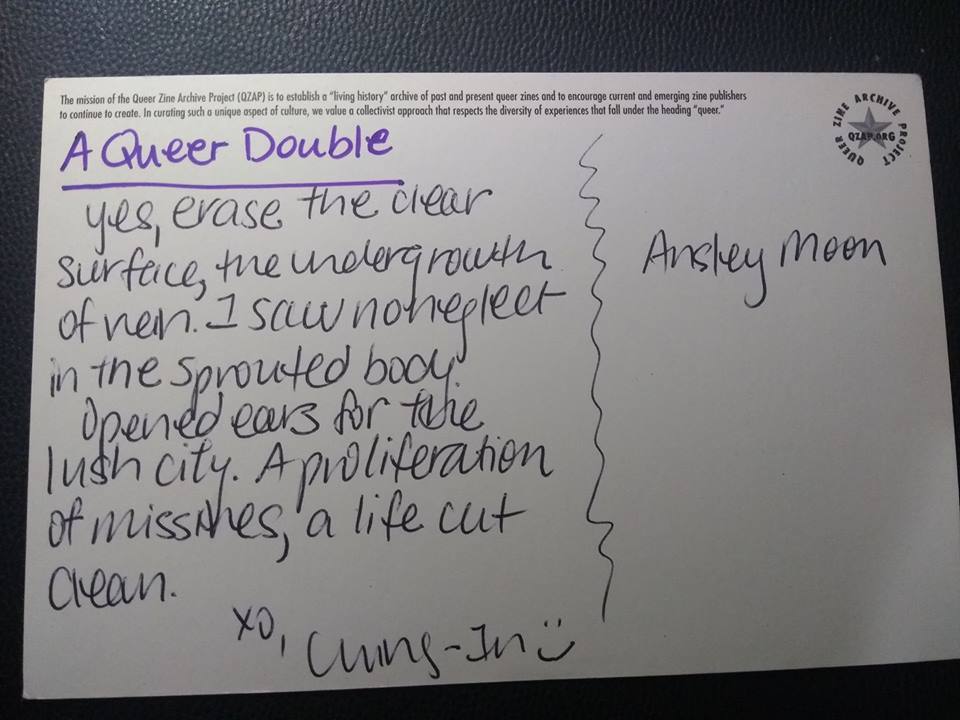 The mission of the Queer Zine Archive Project (QZAP) is to establish a "living history" archive of past and present queer zines and to encourage current and emerging zine publishers
to continue to create. In curating such a unique aspect of culture, we value a collectivist approach that respects the diversity of experiences that fall under the heading "queer."
QUEER ZINE ARCHIVE PROJECT
QZAP.ORG
A Queer Double
yes, erase the clear
surface, the undergrowth
of vein. I saw no neglect
in the sprouted body.
Opened ears for the
lush city. A proliferation
of, a life cut
clean.
xo,
Ching-In
Ansley Moon